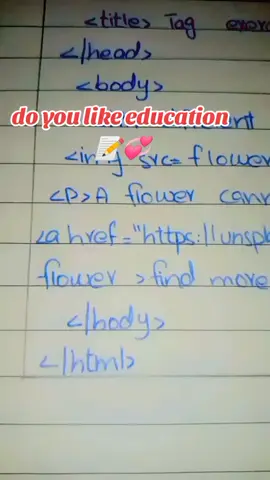 <title> Tag
</head>
<body>
do you like education
<img src= flower
<P>A flower
<a href="https://unspl
flower >find more
</body>
</html>